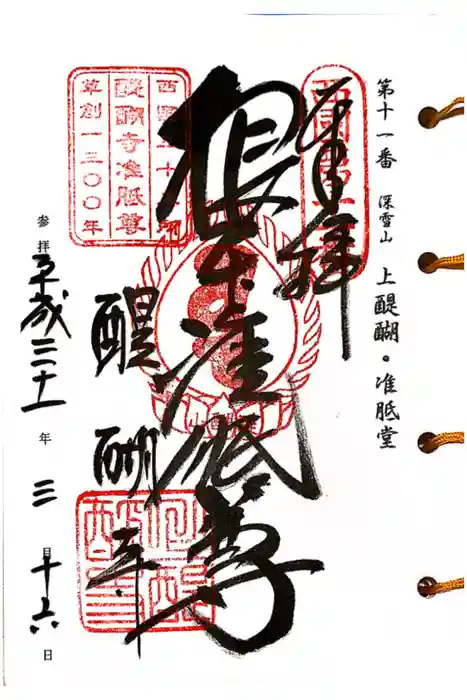 第十一番 深雪山 上醍醐・准胝堂
奉拝
根本准胝尊
西國三十三所
醍醐寺准胝尊
草創一三〇〇年
醍醐寺
参拝 平成三十一年三月十六日